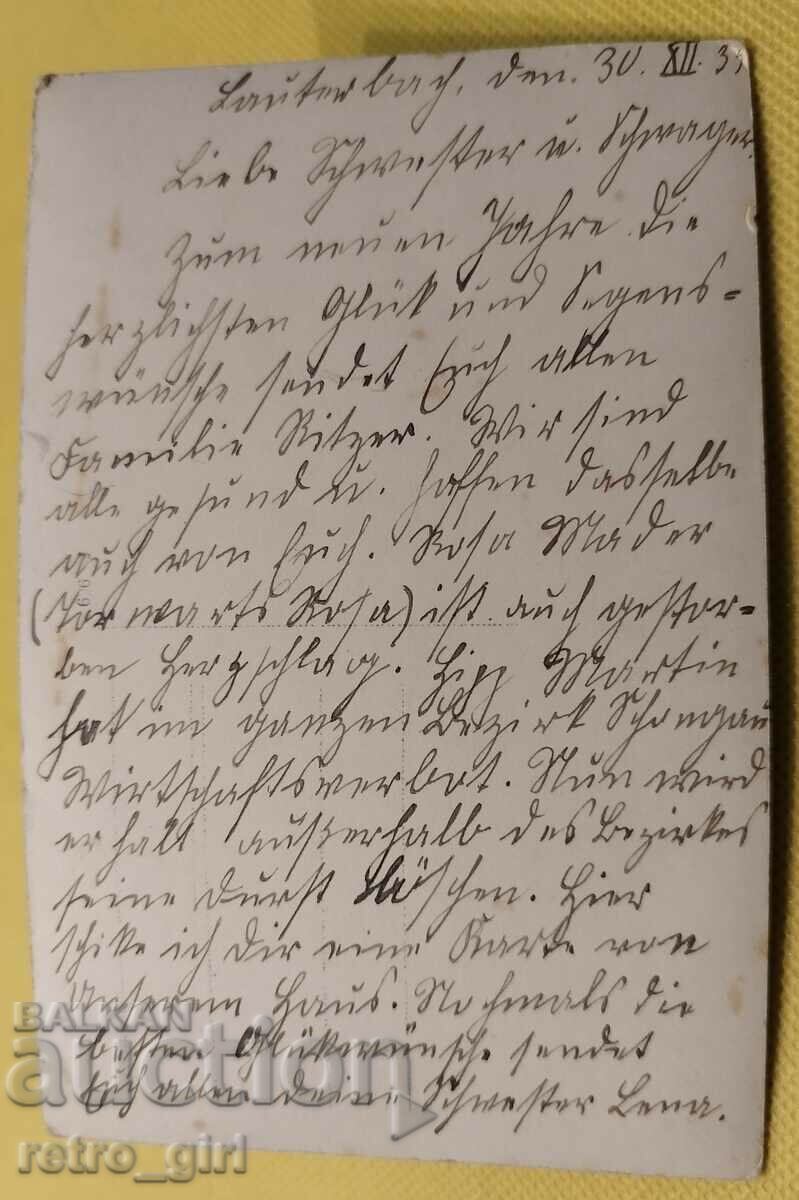 Lauterbach, den. 30. XII. 3
Liebe Schwester u. Schwager.
Zum neuen Jahre die
herzlichsten Glük und Segens-
wünsche sendet Euch allen
Familie Ritzer. Wir sind
alle gesund u. hoffen dasselbe
auch von Euch. Rosa Mader
(Torwarts Rosa) ist auch gestor-
ben Herzschlag. Hipp Martin
hat im ganzen Bezirk Schongau
Wirtschaftsverbot. Nun wird
er halt außerhalb des Bezirkes
seine Durst löschen. Hier
schike ich Dir eine Karte von
Unserem Haus. Nochmals die
besten Glükwünsche sendet
Euch allen deine Schwester Lena.
BALKAN
auction
retro_girl